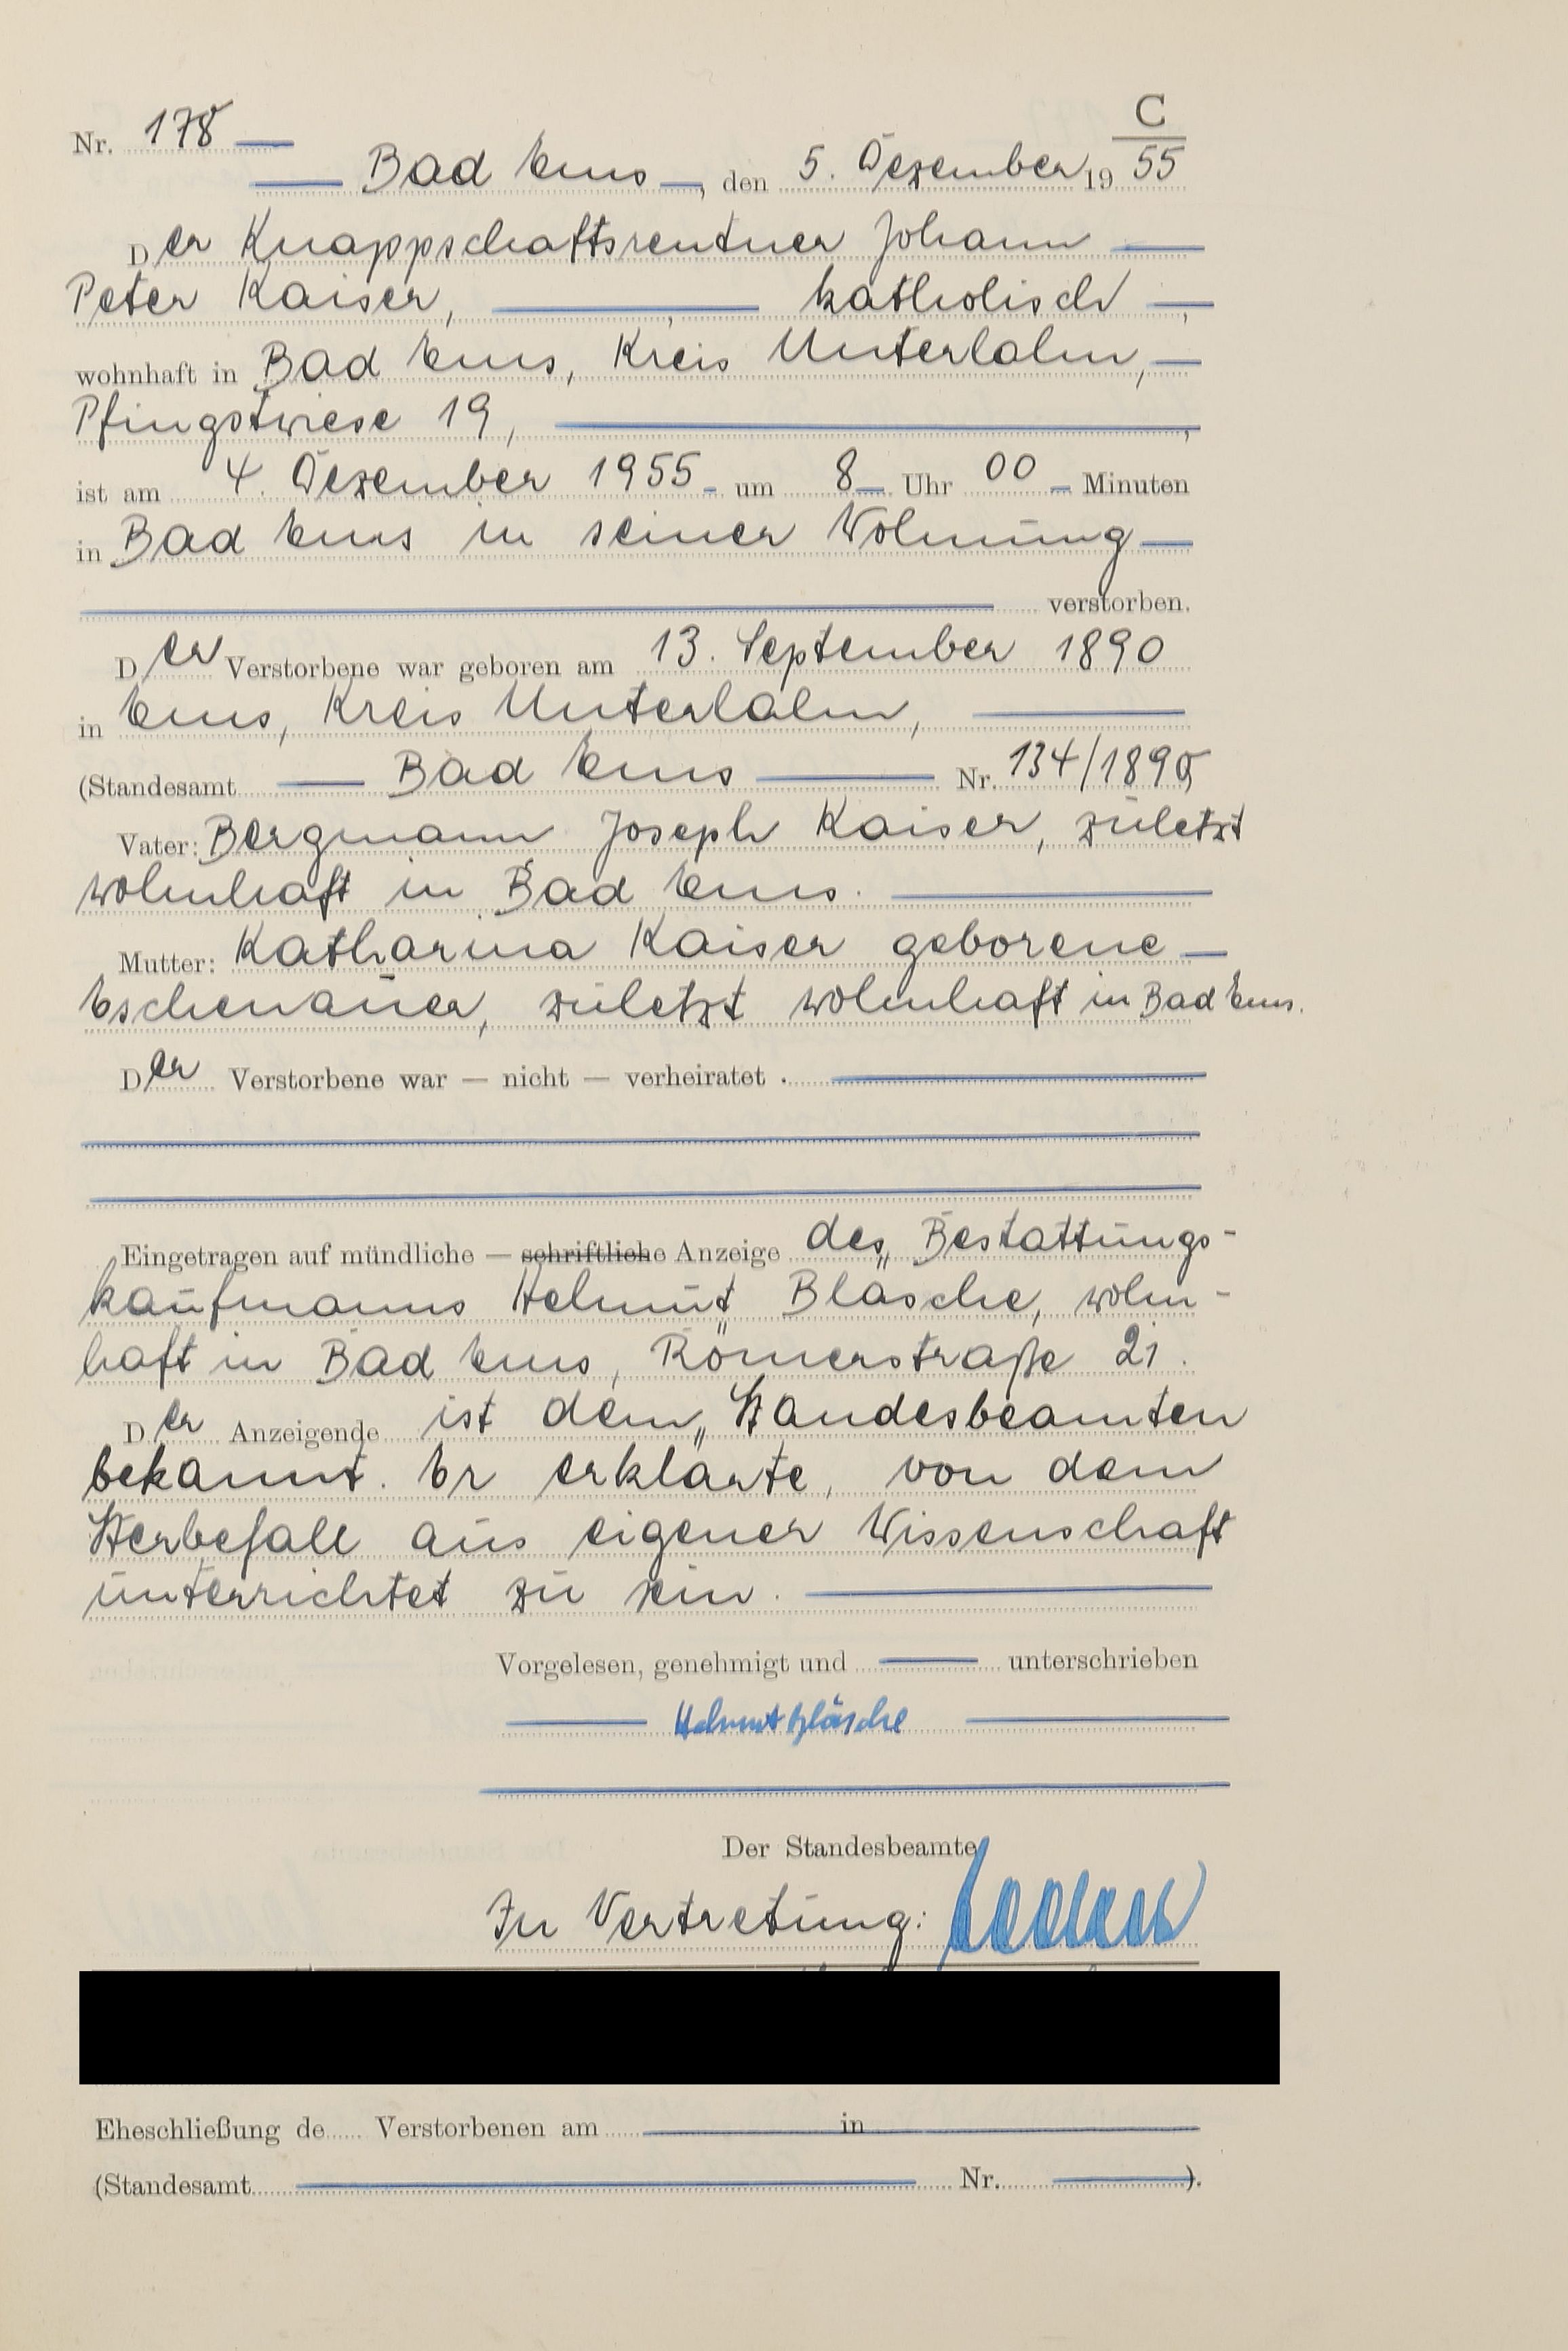 C
Nr. 178
Bad Ems, den 5. Dezember 1955
Der Knappschaftsrentner Johann
Peter Kaiser, , katholisch,
wohnhaft in Bad Ems, Kreis Unterlahn,
Pfingstwiese 19, ,
ist am 4. Dezember 1955 um 8 Uhr 00 Minuten
in Bad Ems in seiner Wohnung
verstorben.
Der Verstorbene war geboren am 13. September 1890
in Ems, Kreis Unterlahn,
(Standesamt Bad Ems Nr. 134/1890)
Vater: Bergmann Joseph Kaiser, zuletzt
wohnhaft in Bad Ems.
Mutter: Katharina Kaiser geborene
Eschenauer, zuletzt wohnhaft in Bad Ems.
Der Verstorbene war — nicht — verheiratet .
Eingetragen auf mündliche — schriftliche Anzeige des Bestattungs-
kaufmanns Helmut Bläsche, wohn-
haft in Bad Ems, Römerstraße 21.
Der Anzeigende ist dem Standesbeamten
bekannt. Er erklärte, von dem
Sterbefall aus eigener Wissenschaft
unterrichtet zu sein.
Vorgelesen, genehmigt und unterschrieben
Helmut Bläsche
Der Standesbeamte
In Vertretung:
Eheschließung de Verstorbenen am in
(Standesamt Nr. ).